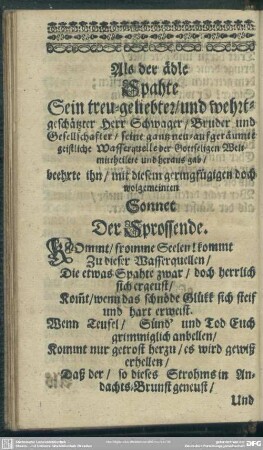 Als der ädle
Spahte
Sein treu-geliebter/und wehrt-
geschätzter Herr Schwager/Bruder und
Gesellschafter/seine gantz neu-aufgeräumte
geistliche Wasserquelle der Gottseligen Welt
mittheilete und heraus gab/
beehrte ihn/mit diesem geringfügigen doch
wolgemeinten
Sonnet
Der Sprossende.
KOmmt/fromme Seelen! kommt
Zu dieser Wasserquellen/
Die etwas Spahte zwar/doch herrlich
sich ergeust/
Kom̃t/wenn das schnöde Glükk sich steif
und hart erweist.
Wenn Teufel/ Sünd' und Tod Euch
grimmiglich anbellen/
Kommt nur getrost herzu/es wird gewiß
erhellen/
Daß der/ so dieses Strohms in An-
dachts-Brunst geneust/
Und